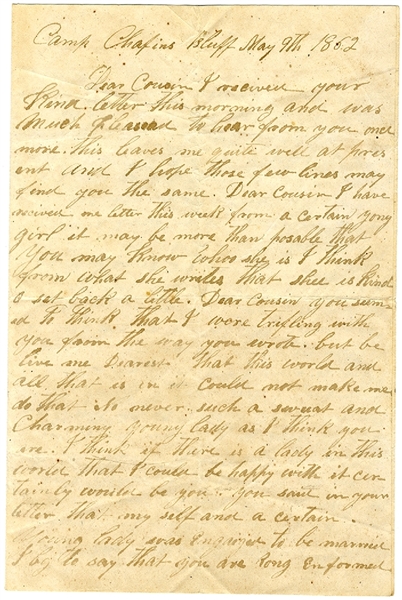 Camp Chafins Bluff May 9th 1862
Dear Cousin I received your
kind letter this morning and was
much pleasead to hear from you once
more. this leaves me quite well at pres
ent and I hope those few lines may
find you the same. Dear Cousin I have
received me letter this week from a certain yong
girl it may be more than posable that
You may know whoo she is I think
from what she writes that shee is kind
o set back a little. Dear Cousin you seem
ed to think that I wore trifling with
you from the way you wrote. but be
live me Dearest that this world and
all that is in it could not make me
do that No never such a sweat and
Charming young lady as I think you
are. I think if there is a lady in this
world that I could be happy with it cer
tainly would be you. you said in your
letter that my self and a certain
young lady was engaged to be married
I beg to say that you are rong enformed